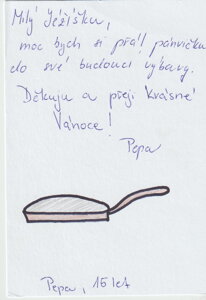 Milý Ježíšku,
moc bych si přál pánvičku
do své budoucí výbavy.
Děkuju a přeji krásné
Vánoce!
Pepa
Pepa, 16 let